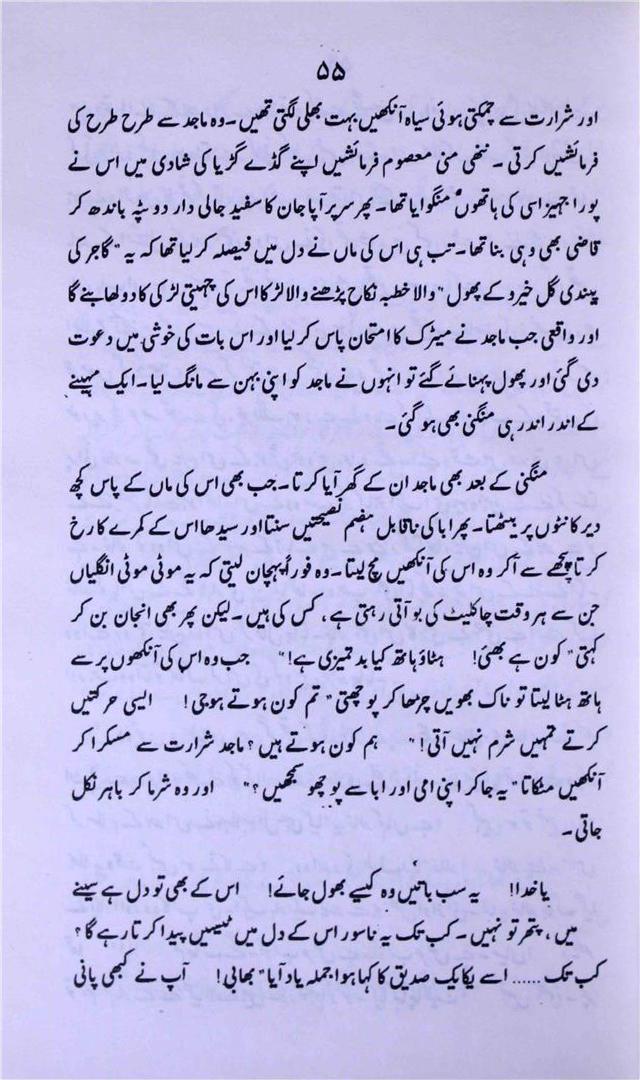 ۵۵
اور شرارت سے چمکتی ہوئی سیاہ آنکھیں بہت بھلی لگتی تھیں۔ وہ ماجد سے طرح طرح کی
فرمائشیں کرتی۔ ننھی منی معصوم فرمائشیں اپنے گڈے گڑیا کی شادی میں اس نے
پورا جہیز اسی کی ہاتھوں منگوایا تھا۔ پھر سر پر آپا جان کا سفید جالی دار دوپٹہ باندھ کر
قاضی بھی وہی بنا تھا۔ تب ہی اس کی ماں نے دل میں فیصلہ کر لیا تھا کہ یہ "گاجر کی
پیندی گل خیرو کے پھول" والا خطبہ نکاح پڑھنے والا لڑکا اس کی چہیتی لڑکی کا دولھا بنے گا
اور واقعی جب ماجد نے میٹرک کا امتحان پاس کر لیا اور اس بات کی خوشی میں دعوت
دی گئی اور پھول پہنائے گئے تو انہوں نے ماجد کو اپنی بہن سے مانگ لیا۔ ایک مہینے
کے اندر اندر ہی منگنی بھی ہو گئی۔
منگنی کے بعد بھی ماجد ان کے گھر آیا کرتا۔ جب بھی اس کی ماں کے پاس کچھ
دیر کانٹوں پر بیٹھتا۔ پھر ابا کی ناقابل ہضم نصیحتیں سنتا اور سیدھا اس کے کمرے کا رخ
کرتا پیچھے سے آکر وہ اس کی آنکھیں میچ لیتا۔ وہ فوراً پہچان لیتی کہ یہ موٹی موٹی انگلیاں
جن سے ہر وقت چاکلیٹ کی بو آتی رہتی ہے، کس کی ہیں۔ لیکن پھر بھی انجان بن کر
کہتی "کون ہے بھئی! ہٹاؤ ہاتھ کیا بد تمیزی ہے!" جب وہ اس کی آنکھوں پر سے
ہاتھ ہٹا لیتا تو ناک بھویں چڑھا کر پوچھتی "تم کون ہوتے ہو جی! ایسی حرکتیں
کرتے تمہیں شرم نہیں آتی!" ہم کون ہوتے ہیں؟ ماجد شرارت سے مسکرا کر
آنکھیں مٹکاتا "یہ جا کر اپنی امی اور ابا سے پوچھو سمجھیں؟" اور وہ شرما کر باہر نکل
جاتی۔
یا خدا! یہ سب باتیں وہ کیسے بھول جائے! اس کے بھی تو دل ہے سینے
میں، پتھر تو نہیں۔ کب تک یہ ناسور اس کے دل میں ٹیسیں پیدا کرتا رہے گا؟
کب تک ...... اسے یکایک صدیق کا کہا ہوا جملہ یاد آیا "بھابی! آپ نے کبھی پانی